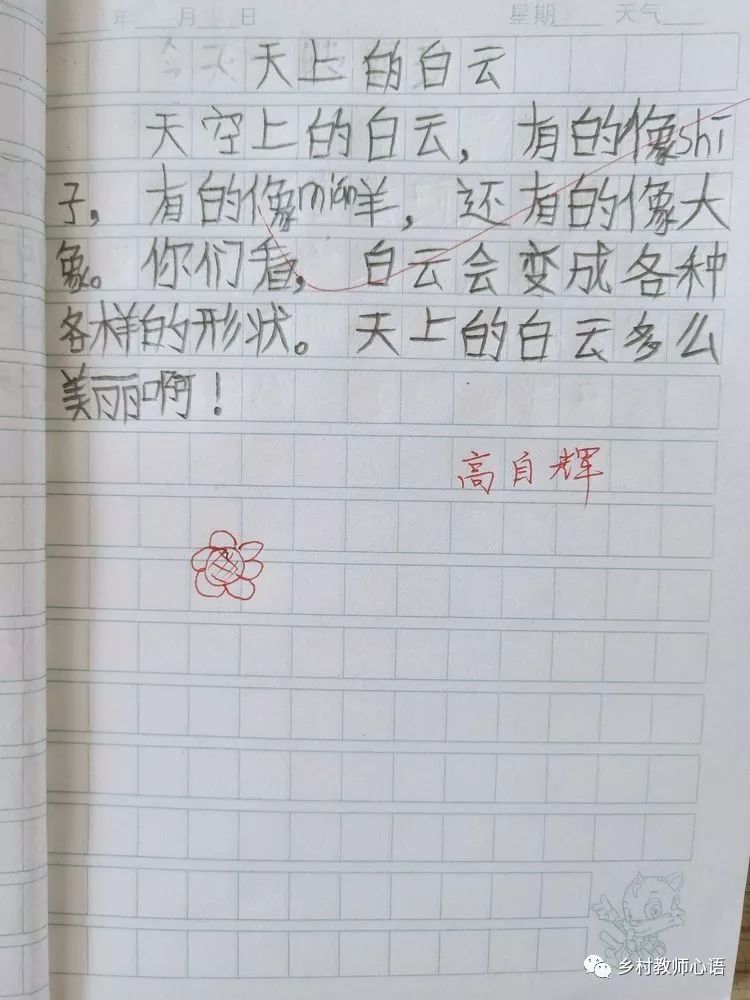 年 月 日 星期 天气
天上的白云
天空上的白云，有的像shī
子，有的像mián羊，还有的像大
象。你们看，白云会变成各种
各样的形状。天上的白云多么
美丽啊！
高自辉
乡村教师心语